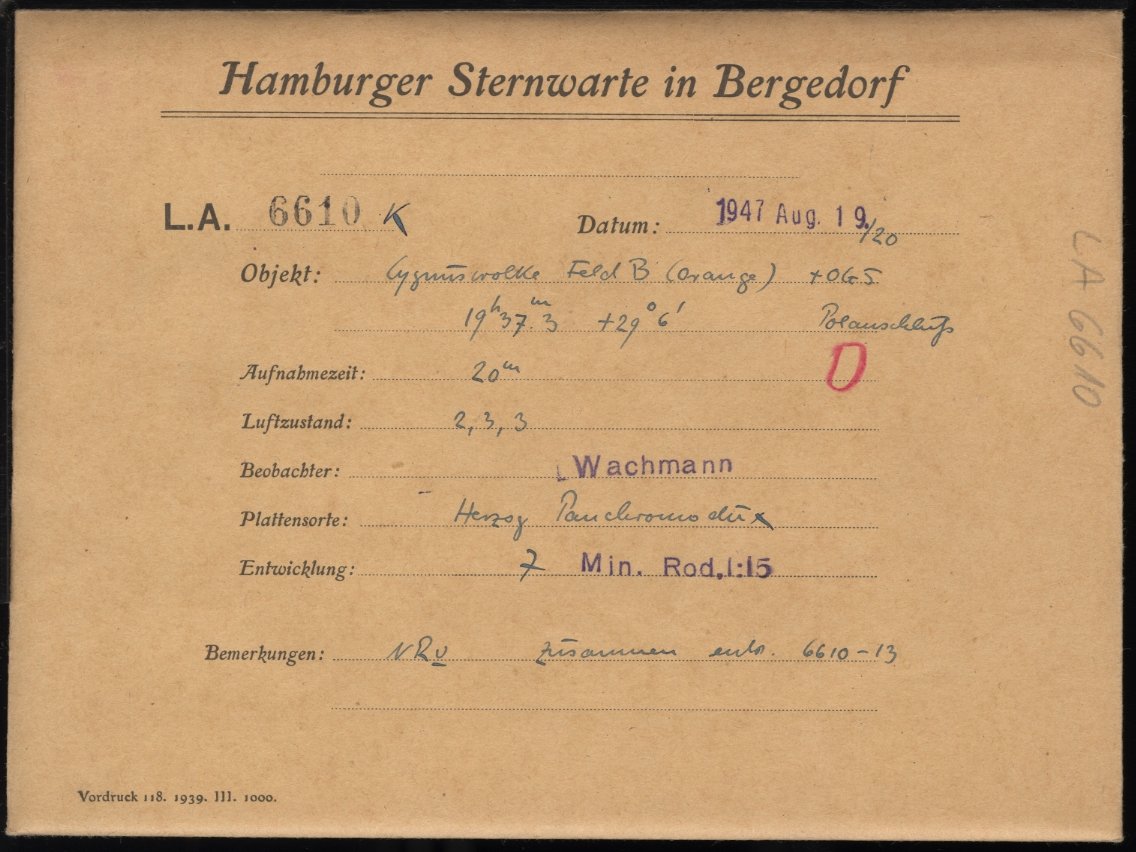 Hamburger Sternwarte in Bergedorf
L.A. 6610 K Datum: 1947 Aug. 19./20
Objekt: Cygnuswolke Feld B (orange) + OG5
19ʰ37ᵐ.3 +29°6′ Polanschluß
Aufnahmezeit: 20ᵐ
Luftzustand: 2, 3, 3
Beobachter: Wachmann
Plattensorte: Herzog Panchromodux
Entwicklung: 7 Min. Rod. 1:15
Bemerkungen: zusammen entw. 6610-13
Vordruck 118. 1939. III. 1000.
LA 6610